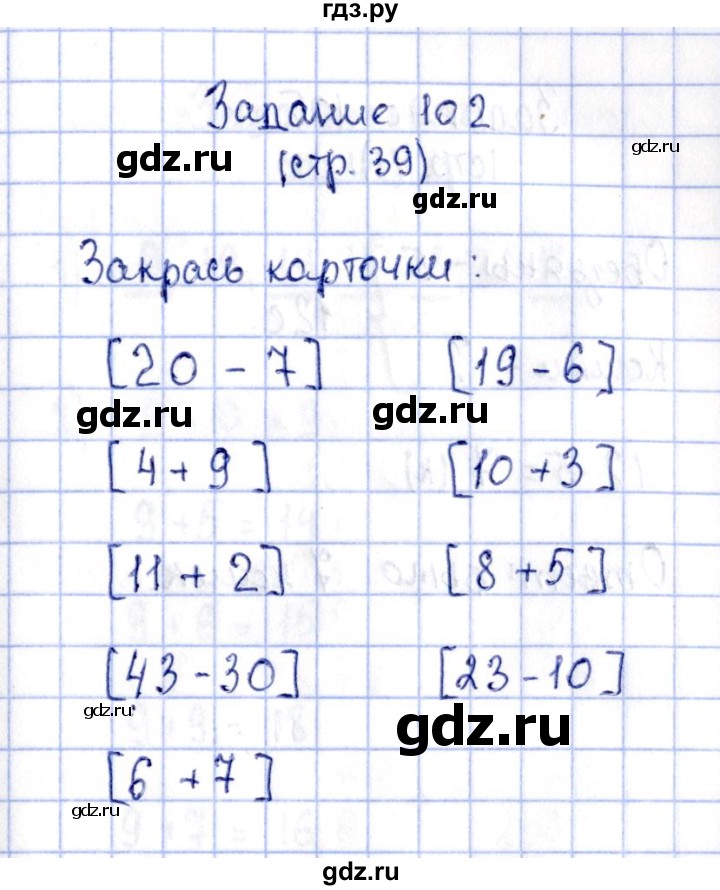 гдз.ру
Задание 102
gdz.ru
(стр. 39)
gdz.ru
gdz.ru
Закрась карточки:
[20 - 7] [19 - 6]
gdz.ru gdz.ru
[4 + 9] [10 + 3]
[11 + 2] [8 + 5]
[43 - 30] [23 - 10]
gdz.ru gdz.ru
[6 + 7]
gdz.ru
gdz.ru